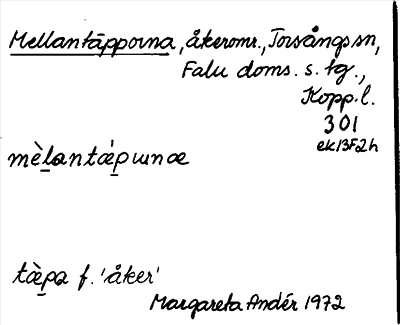 Mellantäpporna, åkeromr., Torsångs sn,
Falu doms. s. tg.,
Kopp.l.
301
ek13F2h
mèl̲antǽp̲ɯnæ
tæ̀p̲a f. 'åker'
Margareta Andér 1972